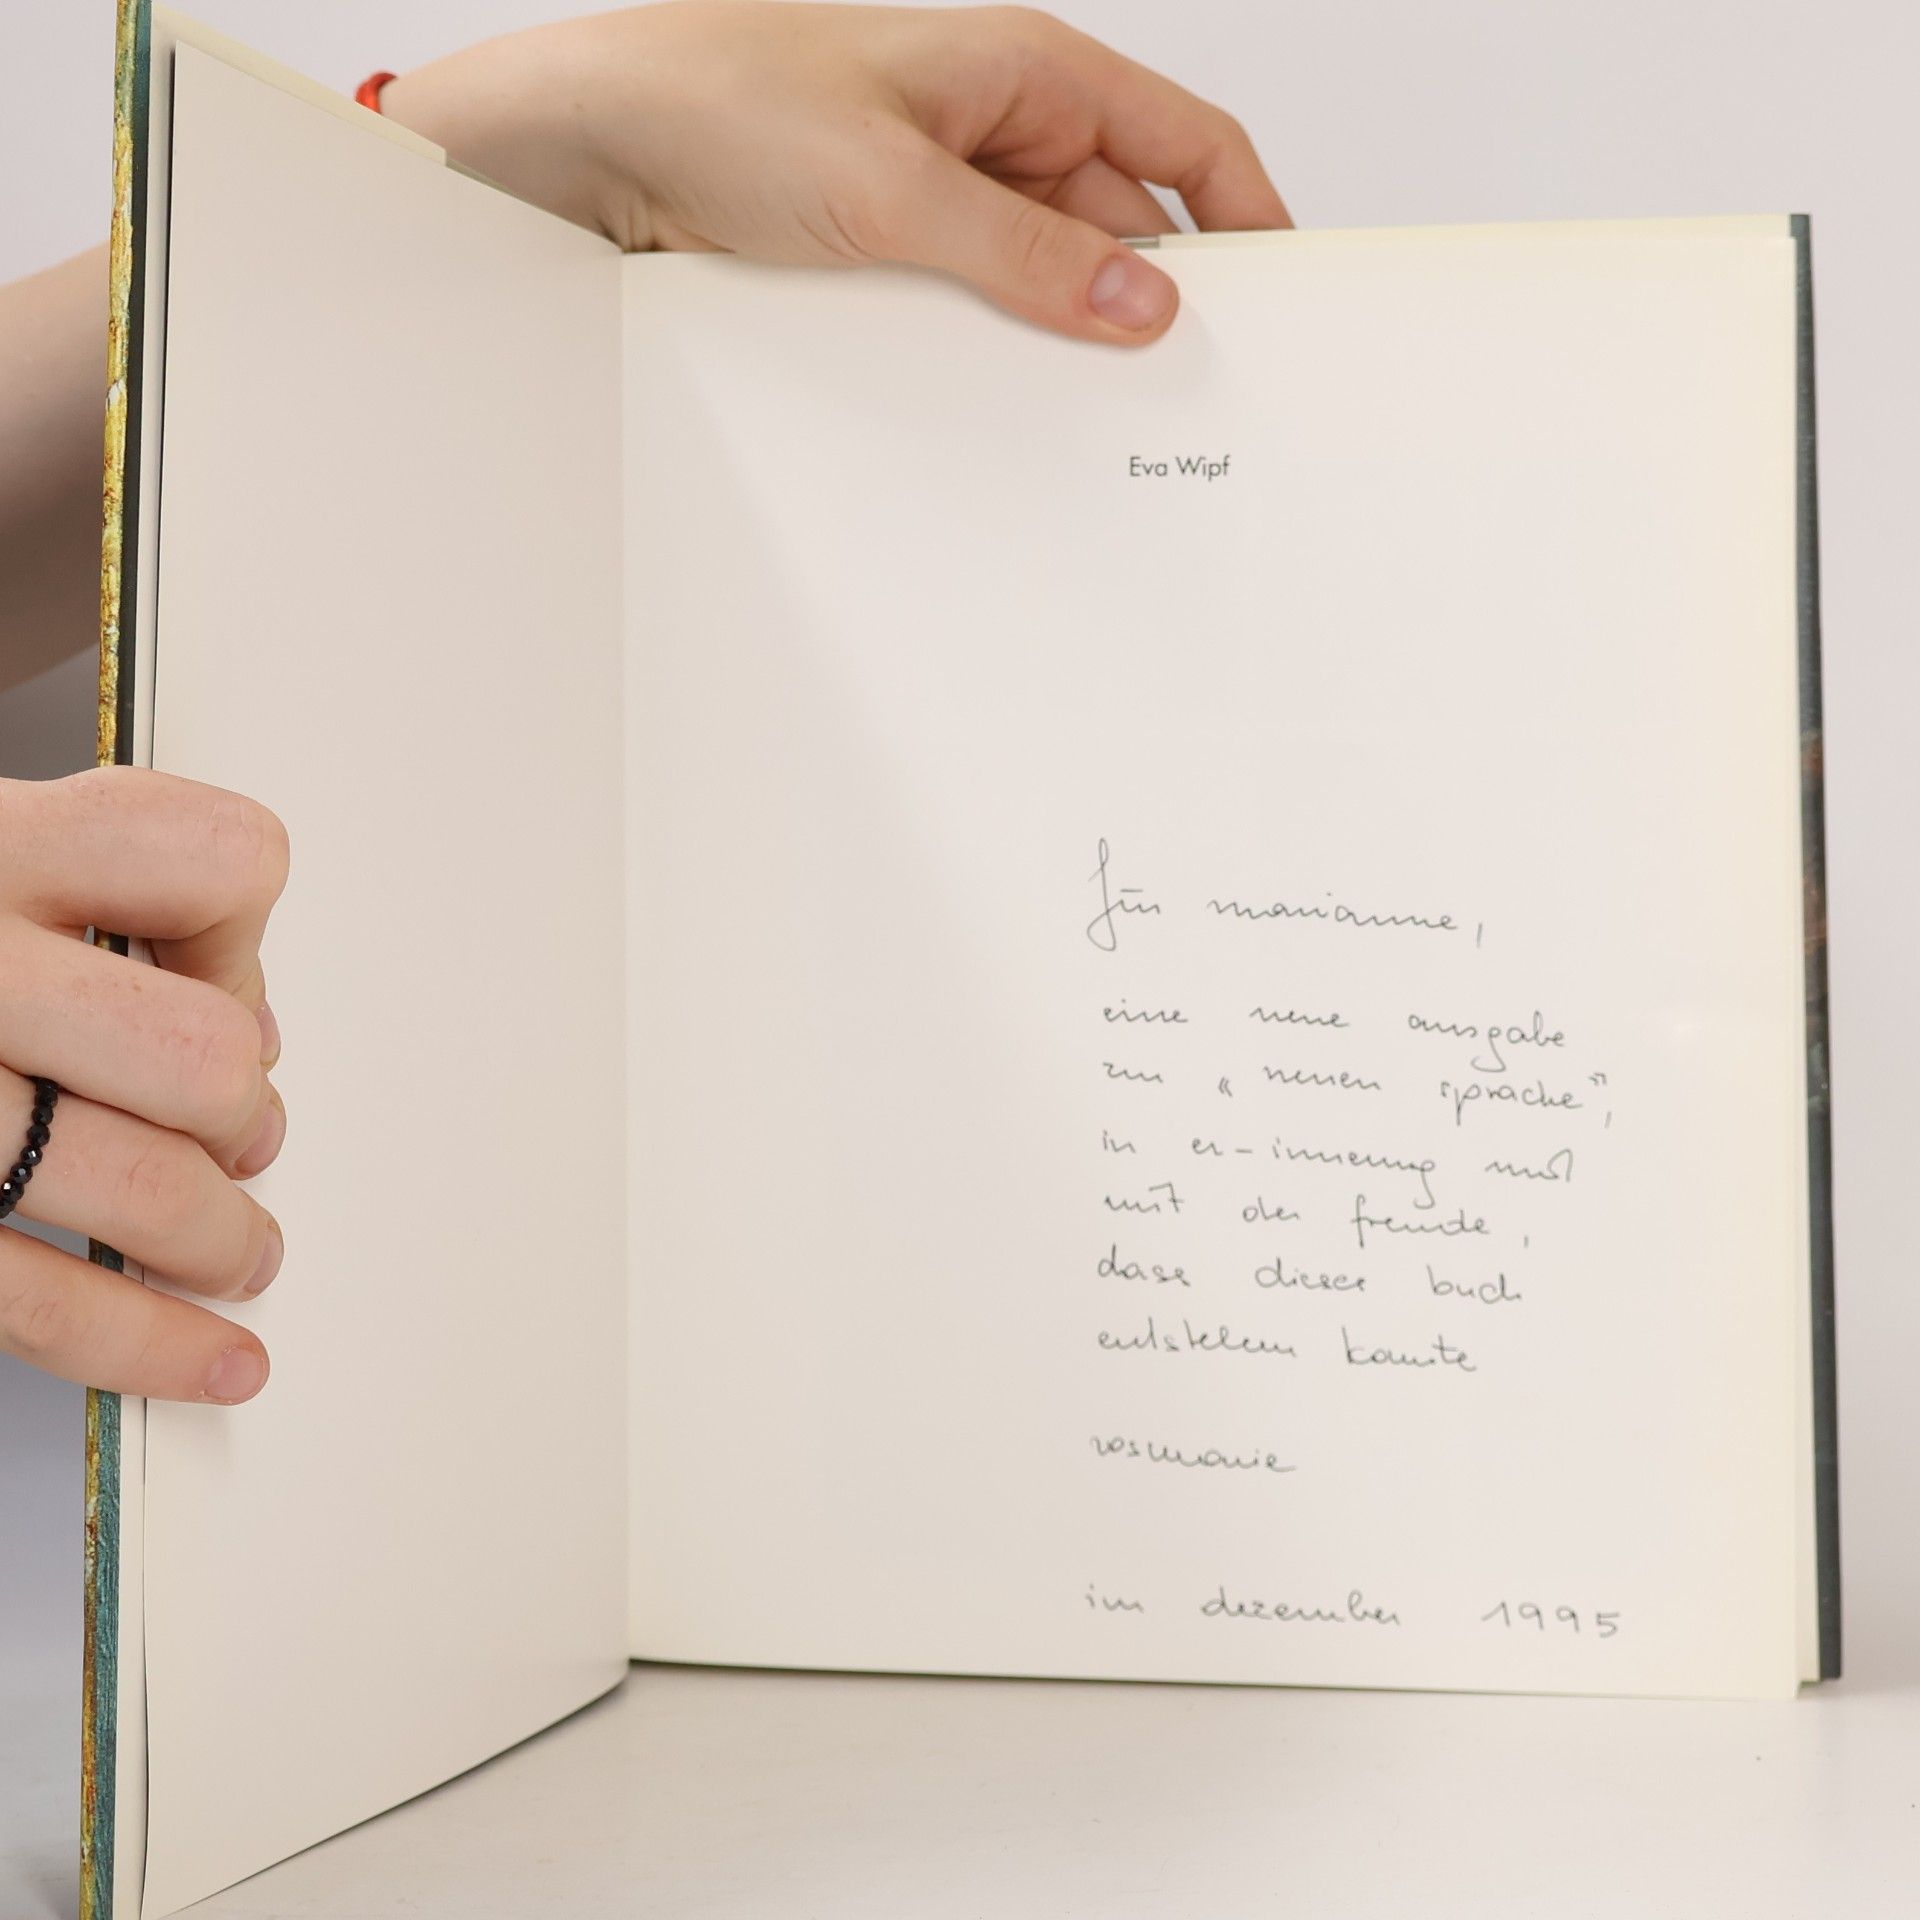 Eva Wipf
für marianne,
eine neue ausgabe
zur « neuen sprache »,
in er-innerung und
mit der freude,
dass dieses buch
entstehen konnte
rosmarie
im dezember 1995